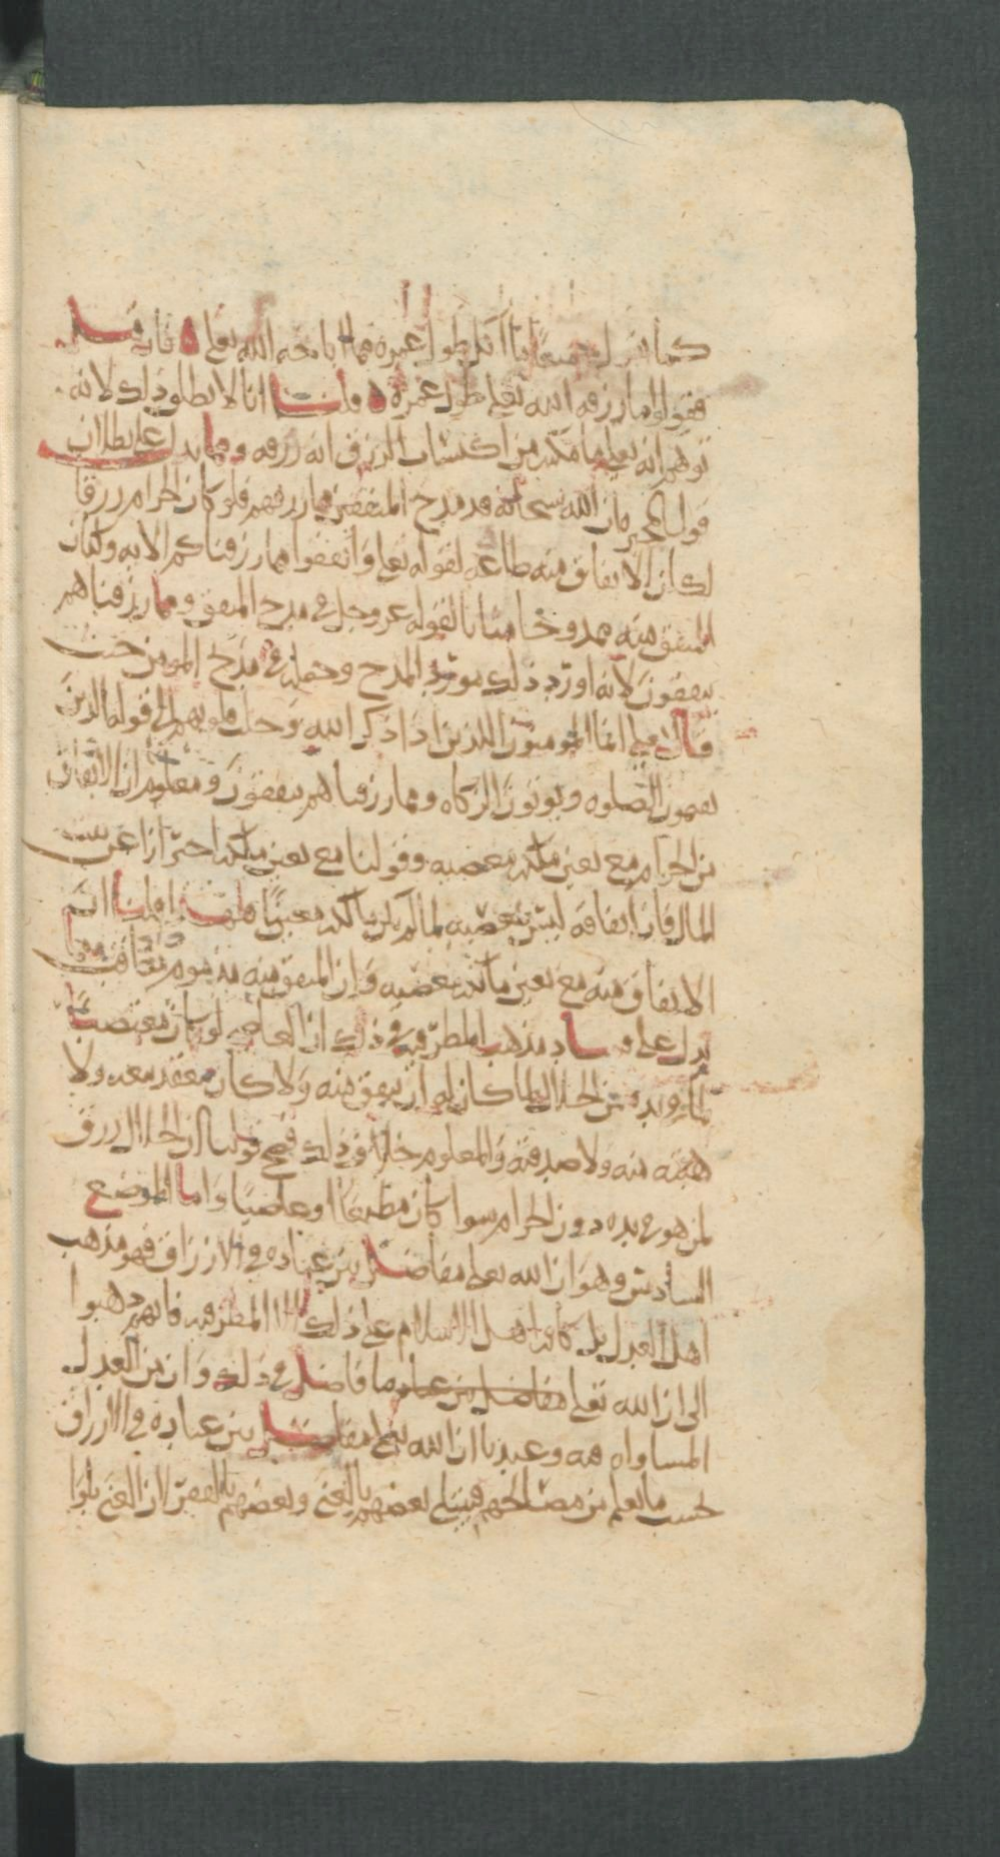 كما نقول جميعا انا اكل طول عمره مما اباحه الله تعلى ٥ فان قيل
فقولوا ما رزقه الله تعلى طول عمره ٥ قلنا انا لا نطلق ذلك لانه
توهم انه تعلى ما مكنه من اكتساب الرزق انه رزقه ومما يدل على بطلان
قول المجبره ان الله سبحانه قد مدح المنفقين مما رزقهم فلو كان الحرام رزقا
لكان الانفاق منه طاعه لقوله تعلى وانفقوا مما رزقناكم الايه وكان
المنفق منه ممدوحا لقوله عز وجل في مدح المنفق ومما رزقناهم
ينفقون لانه اورد ذلك مورد المدح وجمله في مدح المومنين حيث
قال تعلى انما المومنون الذين اذا ذكر الله وجلت قلوبهم الى قوله الذين
يقيمون الصلوه ويوتون الزكاه ومما رزقناهم ينفقون ومعلوم ان الانفاق
من الحرام مع تعين مالكه معصيه وقولنا مع تعين مالكه احترازا عن بيت
المال فان انفاقه ليس بمعصيه لما لم يكن مالكه معينا قلنا ان
الانفاق منه مع تعين مالكه معصيه وان المنفق منه مذموم معاقب ومما
يدل على فساد مذهب المطرفيه في ذلك ان العاصي لو كان مغتصبا
لما في يده من الحلال لما كان له ان ينفق منه ولا كان ينعقد بيعه ولا
هبته منه ولا صدقته والمعلوم خلاف ذلك فصح قولنا ان الحلال رزق
لمن هو في يده دون الحرام سوا كان مطيعا او عاصيا واما الموضع
السادس وهو ان الله تعلى مفاضل بين عباده في الارزاق فهو مذهب
اهل العدل بل كافه اهل الاسلام على ذلك الا المطرفيه فانهم ذهبوا
الى ان الله تعلى ما فاضل في ذلك وان من العدل
المساواه فيه وعندنا ان الله تعلى مفاضل بين عباده في الارزاق
حسب ما يعلم من مصالحهم فيبتلي بعضهم بالغنى وبعضهم بالفقر لان الغنى بلوا